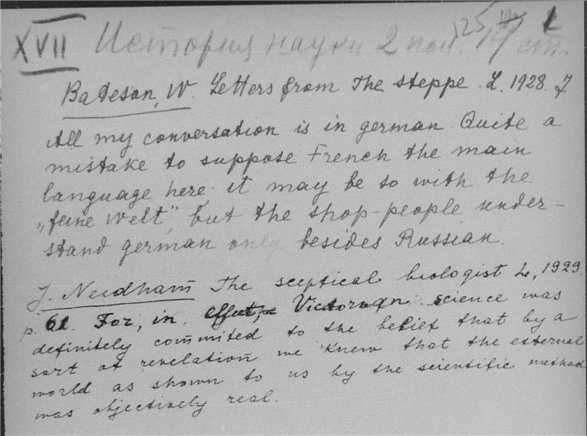 XVII История науки 2 пол. 19 ст.
125
1
Bateson, W. Letters from the steppe. L. 1928. 7
All my conversation is in german Quite a
mistake to suppose French the main
language here. it may be so with the
„feine Welt", but the shop-people under-
stand german only besides Russian.
J. Needham The sceptical biologist L, 1929.
p. 61. For, in effect, Victorian science was
definitely commited to the belief that by a
sort of revelation we knew that the external
world as shown to us by the scientific method
was objectively real.